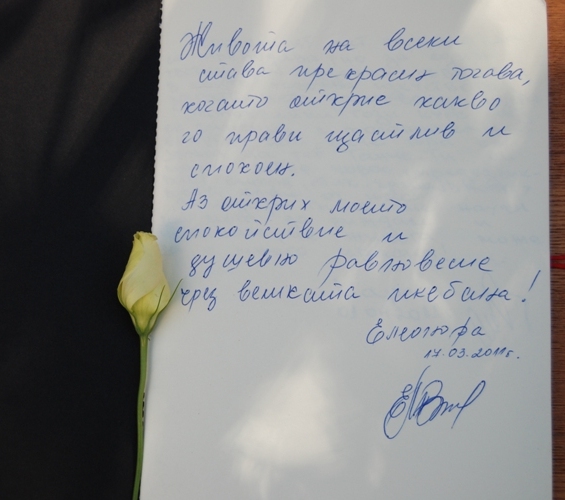 Живота на всеки
става прекрасен тогава,
когато открие какво
го прави щастлив и
спокоен.
Аз открих моето
спокойствие и
душевно равновесие
чрез великата икебана!
Елеонора
17.03.2011г.